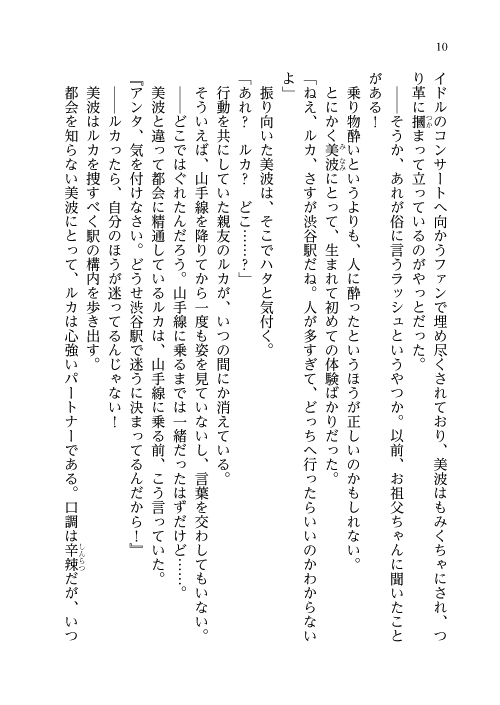 10
イドルのコンサートへ向かうファンで埋め尽くされており、美波はもみくちゃにされ、つ
り革に摑まって立っているのがやっとだった。
――そうか、あれが俗に言うラッシュというやつか。以前、お祖父ちゃんに聞いたこと
がある！
乗り物酔いというよりも、人に酔ったというほうが正しいのかもしれない。
とにかく美波にとって、生まれて初めての体験ばかりだった。
「ねえ、ルカ、さすが渋谷駅だね。人が多すぎて、どっちへ行ったらいいのかわからない
よ」
振り向いた美波は、そこでハタと気付く。
「あれ？　ルカ？　どこ……？」
行動を共にしていた親友のルカが、いつの間にか消えている。
そういえば、山手線を降りてから一度も姿を見ていないし、言葉を交わしてもいない。
――どこではぐれたんだろう。山手線に乗るまでは一緒だったはずだけど……。
美波と違って都会に精通しているルカは、山手線に乗る前、こう言っていた。
『アンタ、気を付けなさい。どうせ渋谷駅で迷うに決まってるんだから！』
――ルカったら、自分のほうが迷ってるんじゃない！
美波はルカを捜すべく駅の構内を歩き出す。
都会を知らない美波にとって、ルカは心強いパートナーである。口調は辛辣だが、いつ